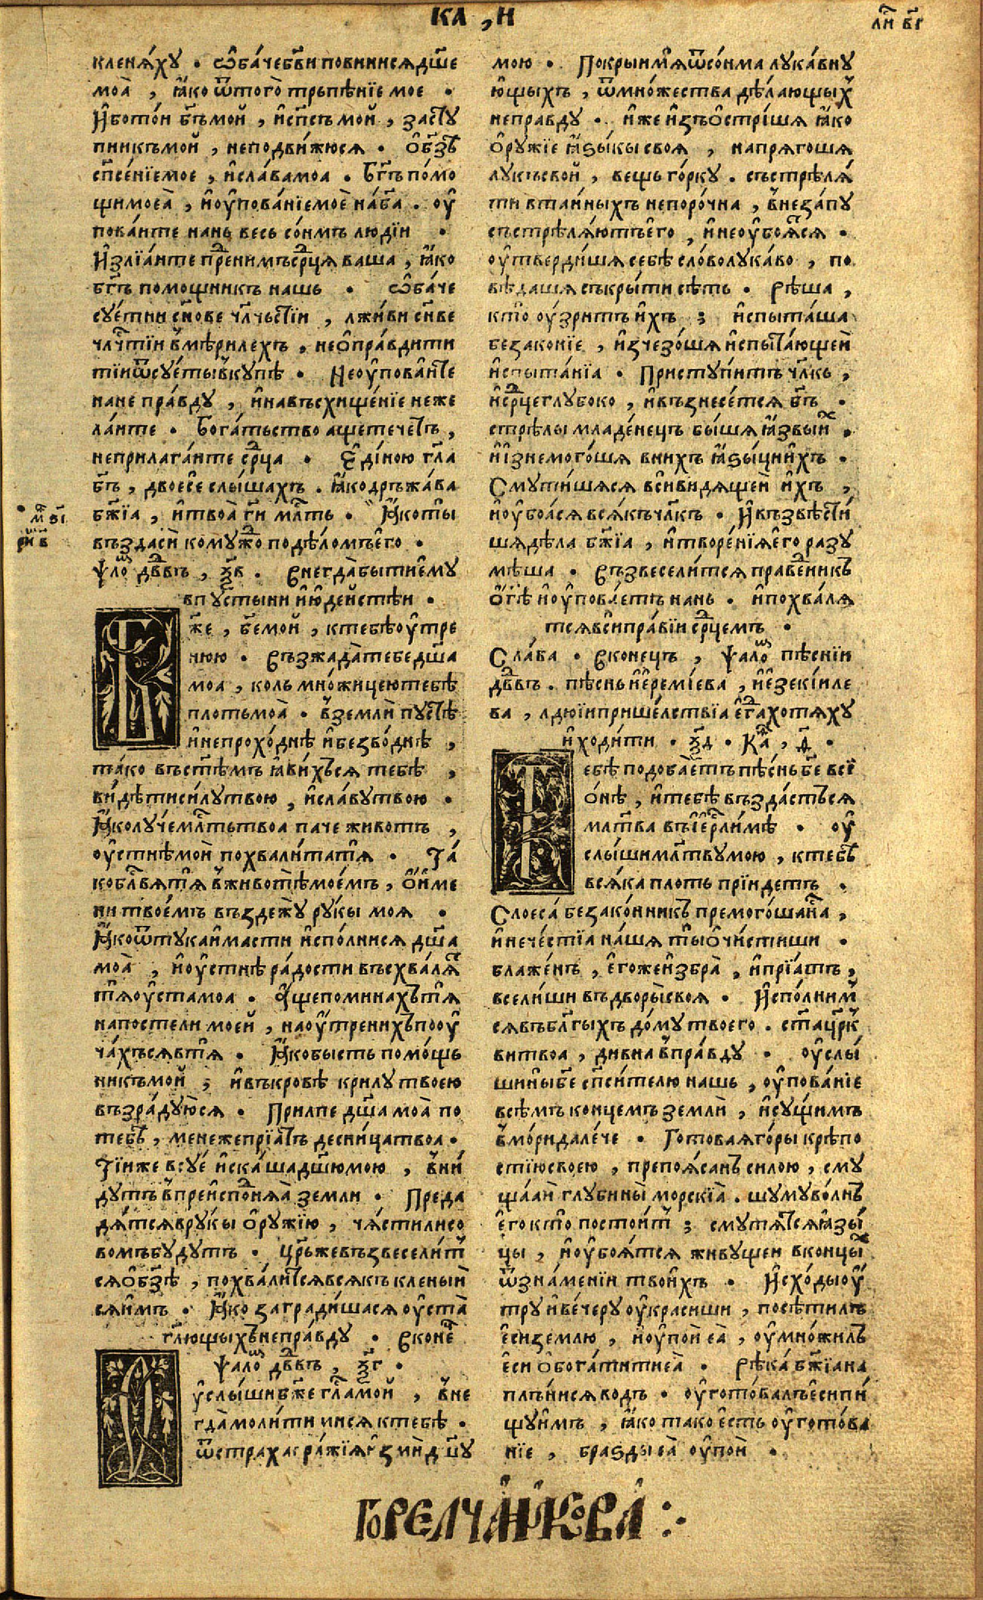 ка҃ , н
лн҃ в҃г
кленѧ́ху . ѡ҆ба́чебг҃ви повинисѧдш҃е
моѧ̀ , ꙗ҆́ко ѿтого̀ трьпѣ́нїе мое .
И҆́ботои бг҃ъмой , и҆сп҃съ мой , засту
пникъмой , неподви́жюсѧ . О҆бз҃ѣ
сп҃се́нїемое , и҆сла́вамоа . Бг҃ъ по́мо
щимоеѧ̀ , и҆ѹ҆пова́нїемоѐ на́ба . ѹ҆
пова́ите нань весь со́нмъ лю́дїи .
И҆злїа́ите пре́нимъсрц҃ѧ ваша , ꙗ҆́ко
бг҃ъ помощникъ нашь . ѡ҆ба́че
сѹ́етни сн҃ове чл҃чьстїи , лжи́ви сн҃ве
члч҃тїи в̾мѣ́рилехъ , нео҆пра́вдити
тїиѿсѹ́етывкѹ́пѣ . Неѹ҆пова́ите
нане пра́вду , и҆навъсхище́нїе неже
ла́ите . Бога́тьство ащетечетъ ,
неприлага́ите срц҃а . Е҆ди́ною гл҃а
бг҃ъ , двоѐсе слы́шахъ . ꙗ҆кодръжа́ва
бж҃їа , и҆твоа̀ ги҃ мл҃ть . Ꙗ҆́коты
въздасѝ комуждо подѣломъего .
ѱало҃ дв҃двъ , ѯ҃в . Внегда́бытиемѹ
впу́стыни и҆ю҆де́истѣи .
же , бж҃емой , ктебѣѹ҆тре
нюю . Възжада́тебедш҃а
моа , коль мно́жицеютебѣ
плотьмоа̀ . в̾землѝ пу́стѣ
и҆непрохо́днѣ и҆безво́днѣ ,
та́ко въст҃ѣмъ ꙗ҆ви́хъсѧ тебѣ̀ ,
ви́дѣтиси́лутвою , и҆сла́вутвою .
Ꙗ҆́колу́чемл҃тьтвоа паче животъ ,
ѹ҆стнѣ́мои похвали́татѧ̀ . Та́
кобл҃гвѧ́тѧ̀ в̾животѣ̀мое́мъ , о҆и҆ме
ни твое́мъ въздежу рукы моѧ .
Ꙗ҆́коѿтукаимасти и҆спо́лнисѧ дш҃а
моа̀ , и҆ѹ҆стнѣ ра́дости въсхва́лѧт
тѧѹ҆стамоа . А҆́щепомина́хътѧ̀
напостели моей , наѹ҆́тренихъпоѹ҆
ча́хъсѧвтѧ̀ . Ꙗ҆́кобысть помо́щь
никъмой ; и҆въкровѣ крилу твоею
възра́дуюсѧ . Прилпе дш҃а моа̀ по
тебѣ̀ , менежепрїа́тъ десни́цатвоа .
Тїиже всу́е и҆ска́шадш҃юмою , вни́
дутъ в̾преиспо́днѧѧ земли . Преда
дѧ́тсѧвруки о҆ру́жїю , ча́стилисо
вомъбу́дутъ . Цр҃ьжевъзвесели́т
сѧо҆бз҃ѣ , похва́литсѧвсѧ́къ кленый
сѧи҆мъ . Ꙗ҆́ко загради́шасѧ ѹ҆ста̀
гл҃ющихънепра́вду . В коне́
ѱало҃ дв҃двъ , ѯ҃г .
ѹ҆слы́шибж҃е гла́мой , вне
гда́моли́ти мисѧ ктебѣ .
ѿстраха вра́жїѧи҆змѝ дш҃у
мою . Покрыи҆мѧ̀ѿсо́нма лука́вну
ющыхъ , ѿмно́жества дѣ́лающых
непра́вду . и҆́же и҆зъо҆стри́шѧ ꙗ҆́ко
о҆ру́жїе ꙗ҆ѕы́кы своѧ , напрѧгошѧ
лу́късвой , вещь го́рку . състрѣлѧ́
ти втаи́ныхъ непоро́чна , в̾неза́пу
състрѣлѧ́ютъего , и҆неѹ҆боѧ́тсѧ .
ѹ҆тверди́шѧ себѣ сло́волука́во , по
вѣ́дашѧ съкры́ти сѣть . рѣша ,
кто̀ ѹ҆́зритъ и҆́хъ ; и҆спыта́ша
безако́нїе , и҆зчезо́шѧ и҆спыта́ющей
и҆спыта́нїа . Присту́питъ чл҃къ ,
и҆срц҃еглубоко , и҆възнесе́тсѧ бг҃ъ .
стрѣ́лы младе́нець бы́шѧ ꙗ҆́звыих .
и҆и҆знемого́шѧ внихъ ꙗ҆ѕы́цыи҆́хъ .
Смути́шѧсѧ вси́видѧщей и҆́хъ ,
и҆ѹ҆боа́сѧ всѧ́къчл҃къ . И҆възвѣсти́
шѧдѣ́ла бж҃їа , и҆творе́нїѧего разу
мѣ́ша . Възвесели́тсѧ пра́ведникъ
о҆гд҃ѣ и҆ѹ҆пова́етъ нань . и҆похва́лѧ
тсѧвси́пра́вїи срц҃емъ .
Сла́ва . В конець , ѱало҃ пѣ́снїи
дв҃двъ . пѣ́снь и҆ереміева , и҆е҆зекі́иле
ва , людїиприше́лствїа е҆гдахотѧ́ху
и҆ходи́ти . ѯ҃д . Ка҃ , д҃ .
ебѣ подоба́етъ пѣ́снь бж҃е всї
о́нѣ , и҆тебѣ̀ възда́стьсѧ
мл҃тва въіерл҃имѣ . ѹ҆
слы́шимл҃твумою , ктебѣ
всѧ́ка плоть прїи́детъ .
Словеса̀ безако́нникъ премого́шана́ ,
и҆нече́стїа на́шѧ ты̀о҆чи́стиши .
блаже́нъ , е҆го́жеи҆збра̀ , и҆прїа́тъ ,
всели́ши въдво́рысвоѧ . И҆спо́лним
сѧвъбл҃гыхъ до́му твоего . ста̀црк҃
витвоа , дивна в̾пра́вду . ѹ҆слы́
шины̀бж҃е сп҃си́телю нашь , ѹ҆пова́нїе
всѣ́мъ концемъ землѝ , и҆су́щимъ
в̾мо́ридале́че . Гото́ваѧго́ры крѣпо
стїюсвоею , препоѧ́санъ си́лою , сму
ща́ай глубины̀ морскїа . шуму́во́лнъ
е҆го кто̀ постои́т ; смутѧ́тсѧꙗ҆зы́
цы , и҆ѹ҆боѧ́тсѧ живу́щей вконцых
ѿзна́менїи твои́хъ . И҆схо́дыѹ҆́
тру и҆ве́черу ѹ҆кра́сиши , посѣти́лъ
е҆сизе́млю , и҆ѹ҆пой еѧ̀ , ѹ҆мно́жилъ
е҆си о҆богати́тиеѧ̀ . рѣка̀ бж҃їана
плъ́нисѧ во́дъ . ѹ҆гото́валъе҆си пи́
щуи҆́мъ , ꙗ҆́ко тако е҆сть ѹ҆гото́ва
нїе , бра́зды еѧ̀ ѹ҆пой .
м҃ ѕ҃і
рн҃ в